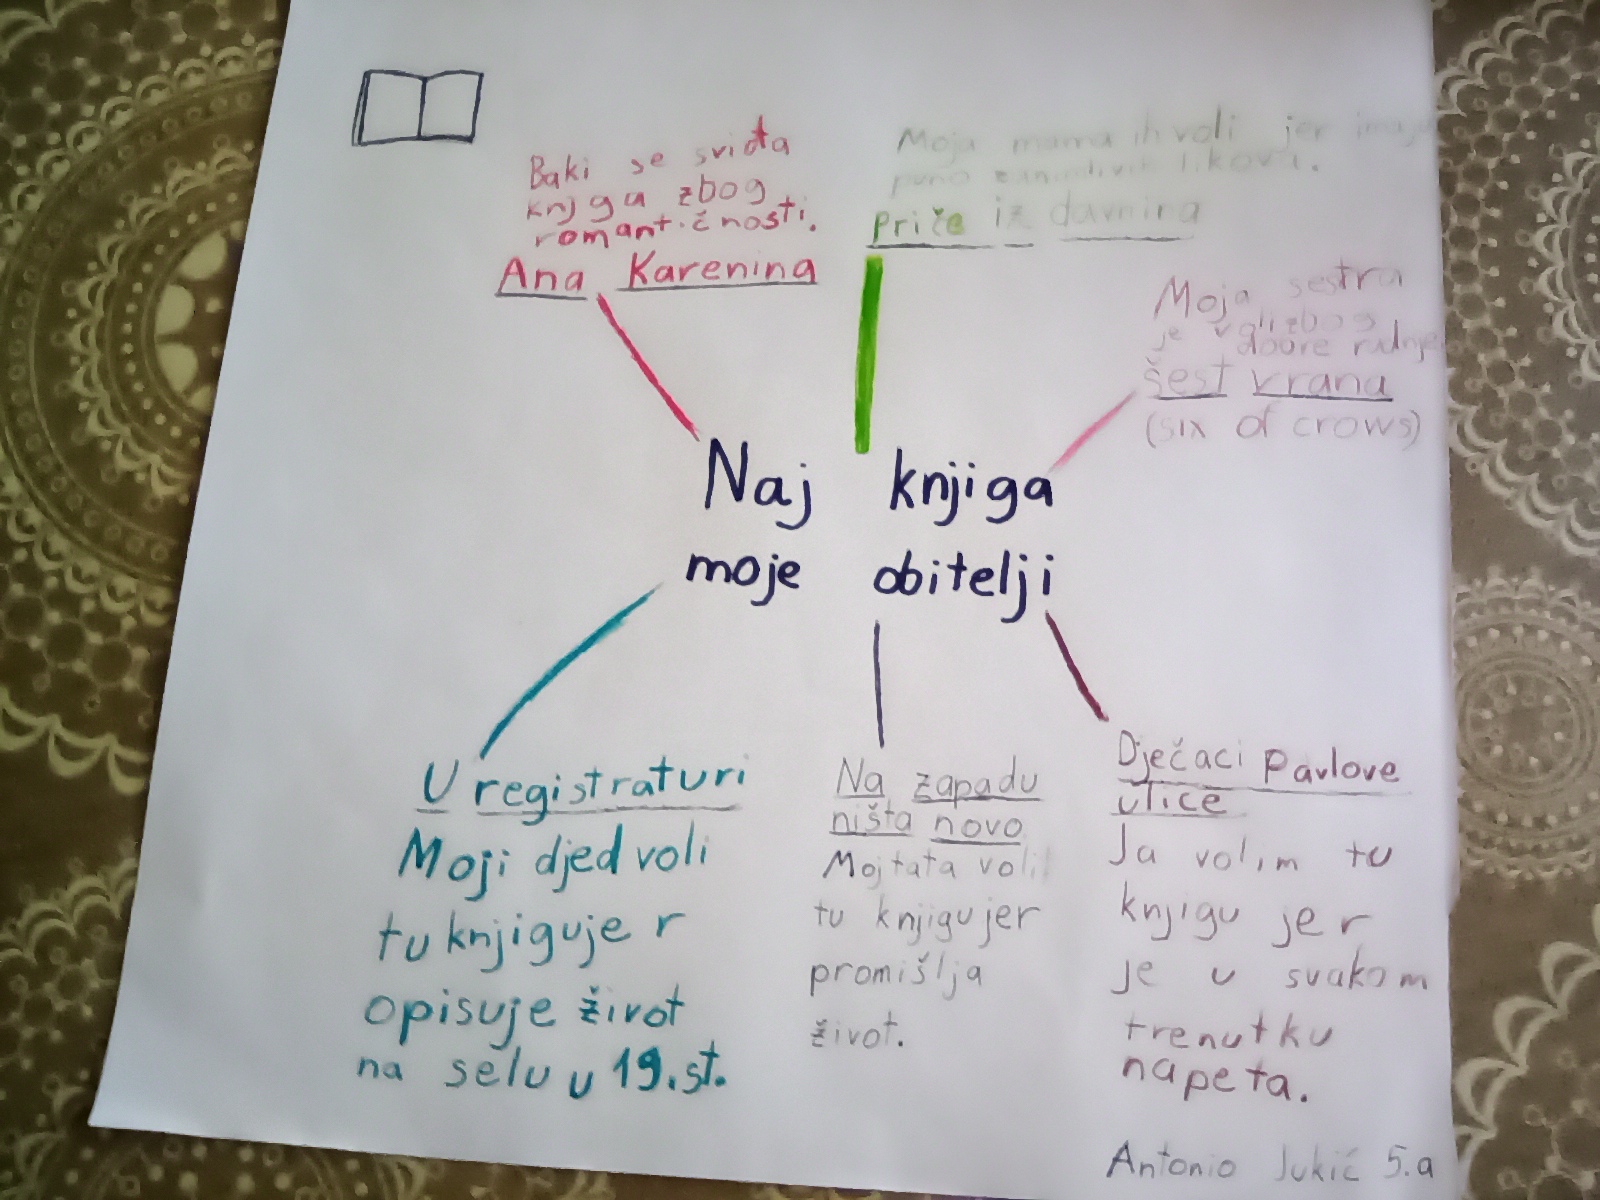 Baki se sviđa
knjiga zbog
romantičnosti.
Ana Karenina
Moja mama ih voli jer imaju
puno zanimljivih likova.
Priče iz davnina
Moja sestra
je voli zbog
dobre radnje
Šest vrana
(six of crows)
Naj knjiga
moje obitelji
U registraturi
Moji djed voli
tu knjigu je r
opisuje život
na selu u 19.st.
Na zapadu
ništa novo
Moj tata voli
tu knjigu jer
promišlja
život.
Dječaci Pavlove
ulice
Ja volim tu
knjigu jer
je u svakom
trenutku
napeta.
Antonio Jukić 5.a